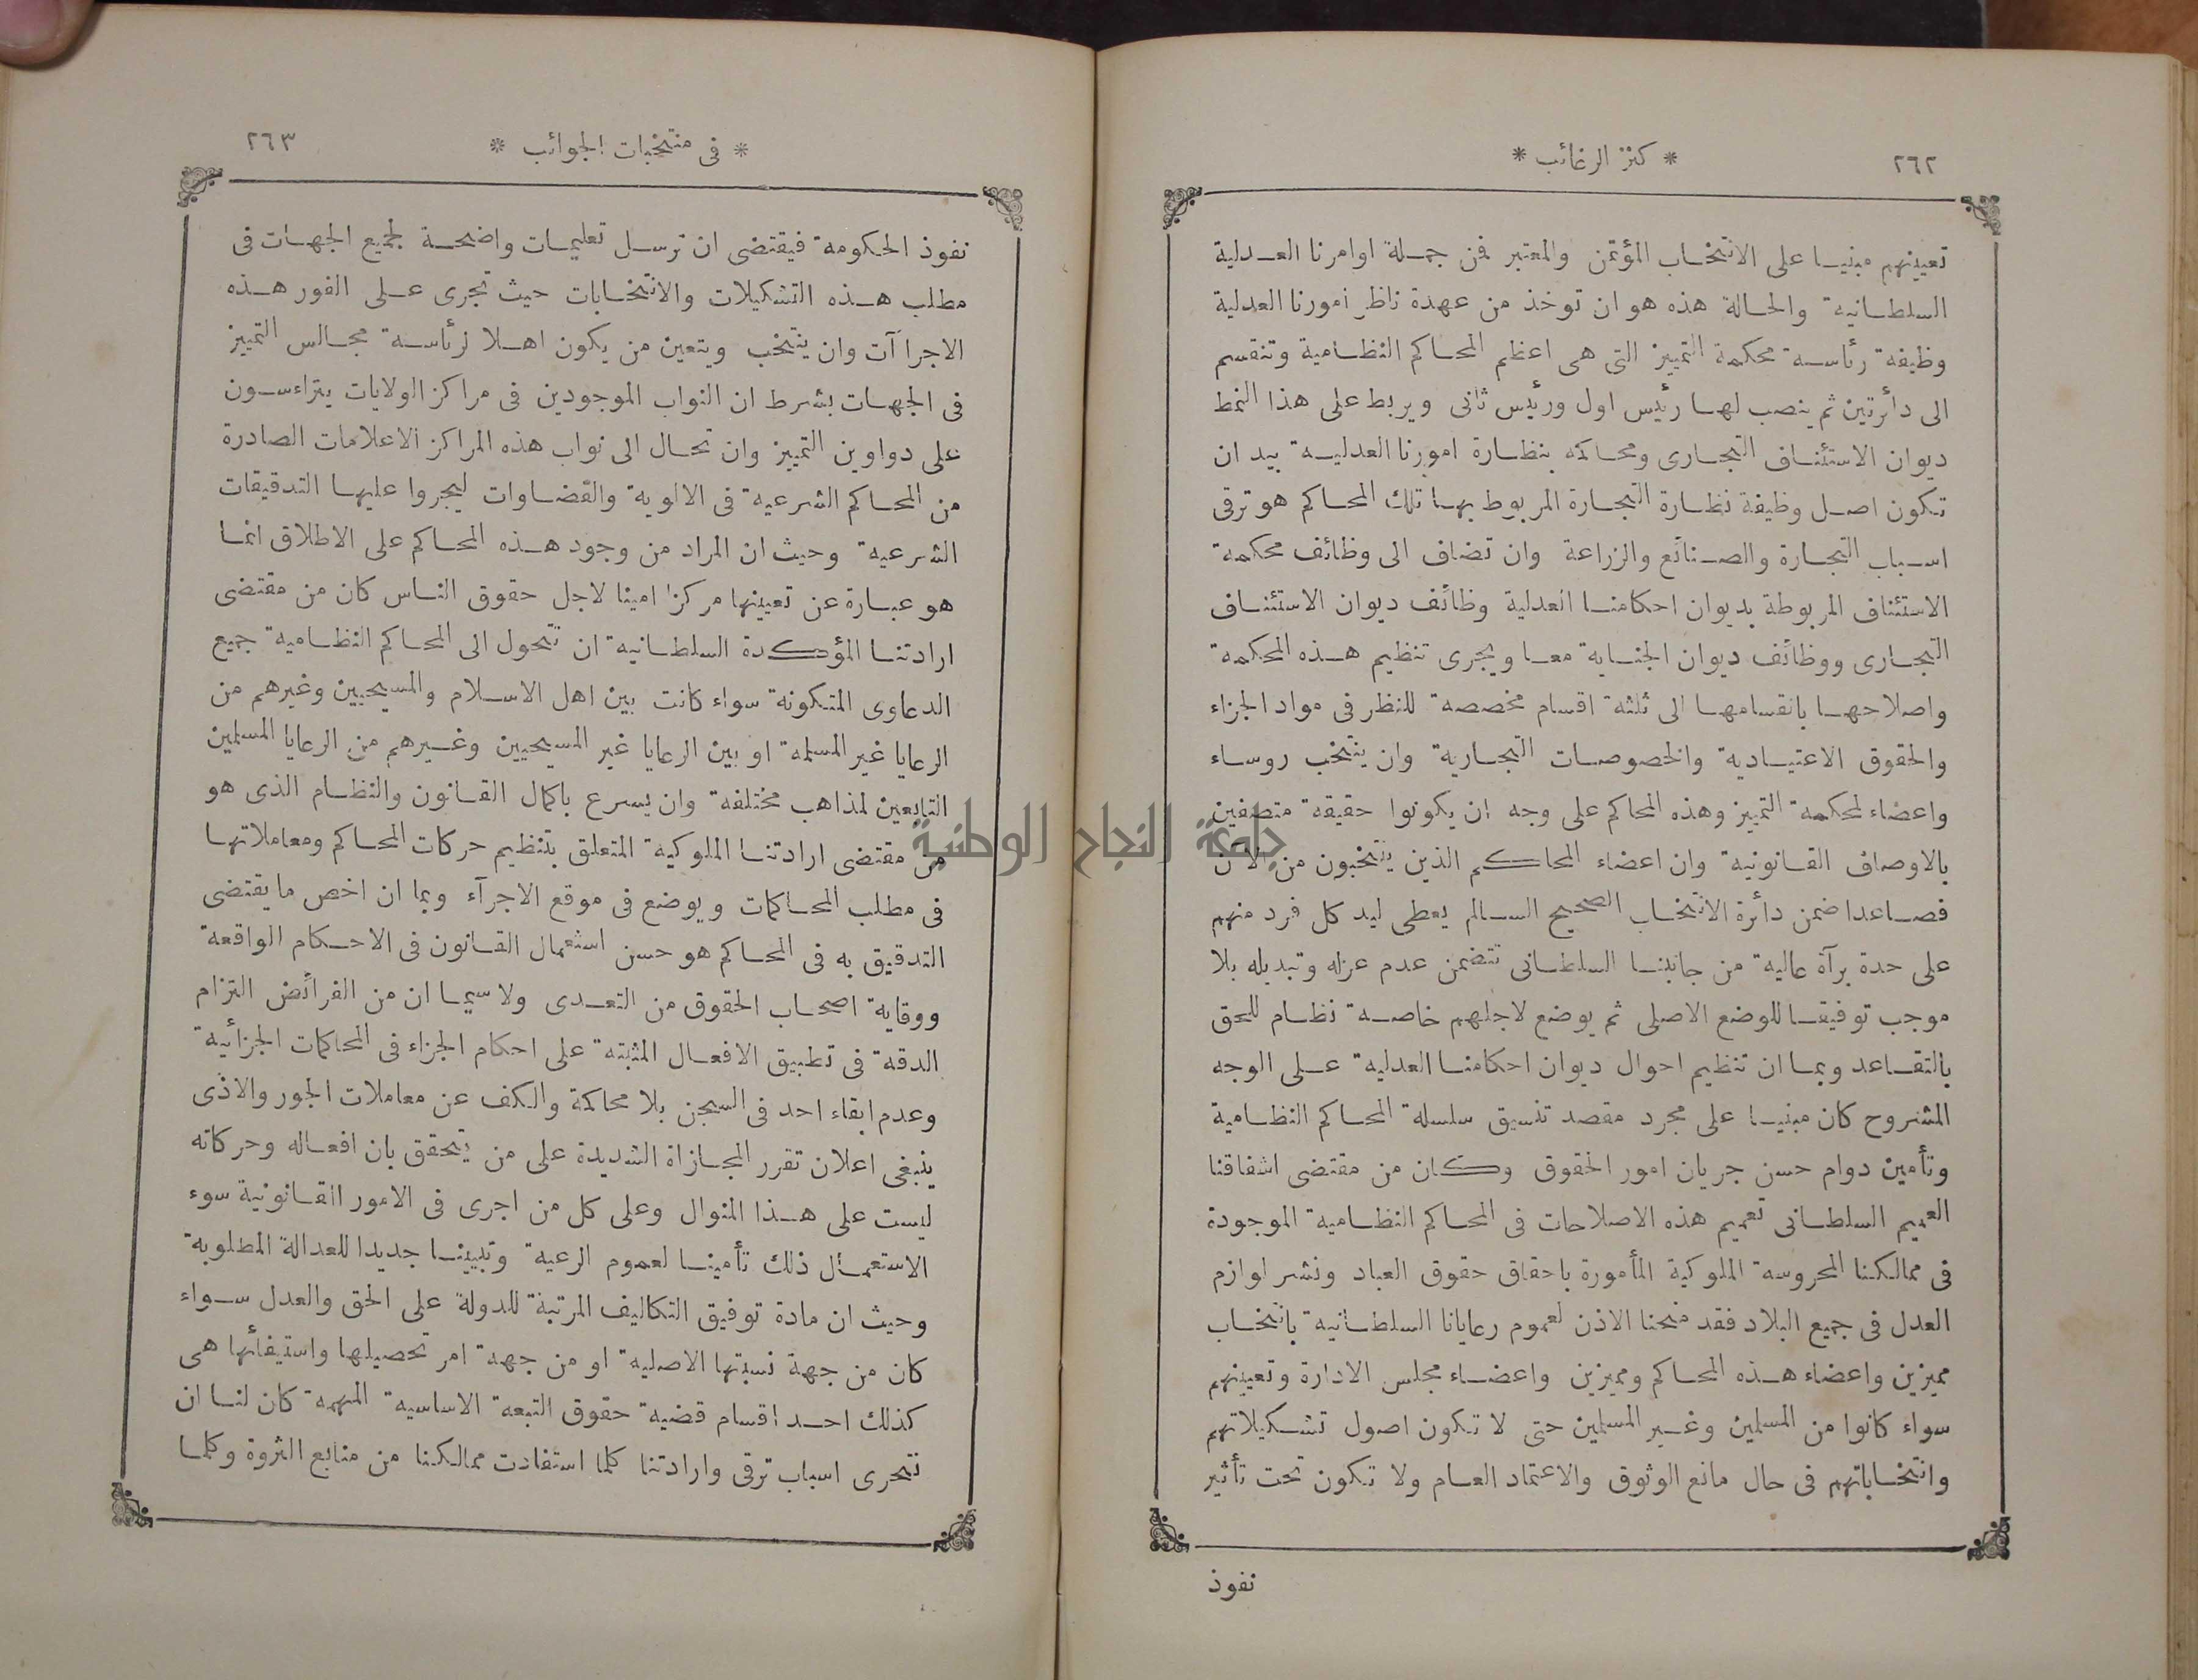 ٢٦٢
* كنز الرغائب *
تعيينهم مبنيا على الانتخاب المؤتمن والمعتبر فمن جملة اوامرنا العدلية
السلطانية والحالة هذه هو ان توخذ من عهدة ناظر امورنا العدلية
وظيفة رئاسة محكمة التمييز التى هى اعظم المحاكم النظامية وتنقسم
الى دائرتين ثم ينصب لها رئيس اول ورئيس ثانى ويربط على هذا النمط
ديوان الاستئناف التجارى ومحاكمه بنظارة امورنا العدلية بيد ان
تكون اصل وظيفة نظارة التجارة المربوط بها تلك المحاكم هو ترقى
اسباب التجارة والصنائع والزراعة وان تضاف الى وظائف محكمة
الاستئناف المربوطة بديوان احكامنا العدلية وظائف ديوان الاستئناف
التجارى ووظائف ديوان الجناية معا ويجرى تنظيم هذه المحكمة
واصلاحها بانقسامها الى ثلثة اقسام مخصصة للنظر فى مواد الجزاء
والحقوق الاعتيادية والخصوصات التجارية وان ينتخب روساء
واعضاء لمحكمة التمييز وهذه المحاكم على وجه ان يكونوا حقيقة متصفين
بالاوصاف القانونية وان اعضاء المحاكم الذين ينتخبون من الآن
فصاعدا ضمن دائرة الانتخاب الصحيح السالم يعطى ليد كل فرد منهم
على حدة برآة عالية من جانبنا السلطانى تتضمن عدم عزله وتبديله بلا
موجب توفيقا للوضع الاصلى ثم يوضع لاجلهم خاصة نظام للحق
بالتقاعد وبما ان تنظيم احوال ديوان احكامنا العدلية على الوجه
المشروح كان مبنيا على مجرد مقصد تنسيق سلسلة المحاكم النظامية
وتأمين دوام حسن جريان امور الحقوق وكان من مقتضى اشفاقنا
العميم السلطانى تعميم هذه الاصلاحات فى المحاكم النظامية الموجودة
فى ممالكنا المحروسة الملوكية المأمورة باحقاق حقوق العباد ونشر لوازم
العدل فى جميع البلاد فقد منحنا الاذن لعموم رعايانا السلطانية بانتخاب
مميزين واعضاء هذه المحاكم ومميزين واعضاء مجلس الادارة وتعيينهم
سواء كانوا من المسلمين وغير المسلمين حتى لا تكون اصول تشكيلاتهم
وانتخاباتهم فى حال مانع الوثوق والاعتماد العام ولا تكون تحت تأثير
نفوذ
* فى منتخبات الجوائب *
٢٦٣
نفوذ الحكومة فيقتضى ان ترسل تعليمات واضحة لجميع الجهات فى
مطلب هذه التشكيلات والانتخابات حيث تجرى على الفور هذه
الاجراآت وان ينتخب ويتعين من يكون اهلا لرئاسة مجالس التمييز
فى الجهات بشرط ان النواب الموجودين فى مراكز الولايات يتراءسون
على دواوين التمييز وان تحال الى نواب هذه المراكز الاعلامات الصادرة
من المحاكم الشرعية فى الالوية والقضاوات ليجروا عليها التدقيقات
الشرعية وحيث ان المراد من وجود هذه المحاكم على الاطلاق انما
هو عبارة عن تعيينها مركزا امينا لاجل حقوق الناس كان من مقتضى
ارادتنا المؤكدة السلطانية ان تتحول الى المحاكم النظامية جميع
الدعاوى المتكونة سواء كانت بين اهل الاسلام والمسيحيين وغيرهم من
الرعايا غير المسلمة او بين الرعايا غير المسيحيين وغيرهم من الرعايا المسلمين
التابعين لمذاهب مختلفة وان يسرع باكمال القانون والنظام الذى هو
من مقتضى ارادتنا الملوكية المتعلق بتنظيم حركات المحاكم ومعاملاتها
فى مطلب المحاكمات ويوضع فى موقع الاجرآء وبما ان اخص ما يقتضى
التدقيق به فى المحاكم هو حسن استعمال القانون فى الاحكام الواقعة
ووقاية اصحاب الحقوق من التعدى ولا سيما ان من الفرائض التزام
الدقة فى تطبيق الافعال المثبتة على احكام الجزاء فى المحاكمات الجزائية
وعدم ابقاء احد فى السجن بلا محاكمة والكف عن معاملات الجور والاذى
ينبغى اعلان تقرر المجازاة الشديدة على من يتحقق بان افعاله وحركاته
ليست على هذا المنوال وعلى كل من اجرى فى الامور القانونية سوء
الاستعمال ذلك تأمينا لعموم الرعية وتبيينا جديدا للعدالة المطلوبة
وحيث ان مادة توفيق التكاليف المرتبة للدولة على الحق والعدل سواء
كان من جهة نسبتها الاصلية او من جهة امر تحصيلها واستيفائها هى
كذلك احد اقسام قضية حقوق التبعة الاساسية المهمة كان لنا ان
نتحرى اسباب ترقى وارادتنا كلما استفادت ممالكنا من منابع الثروة وكلما
جامعة النجاح الوطنية